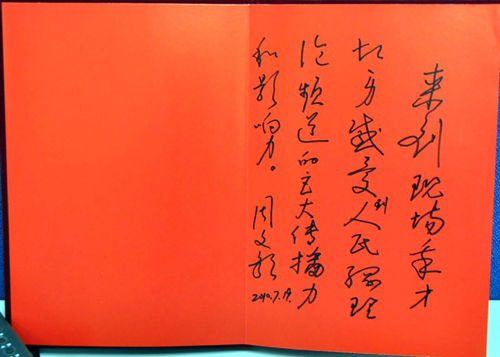 来到现场才
切身感受到人民网理
论频道的巨大传播力
和影响力。周文彰
2010.7.19.